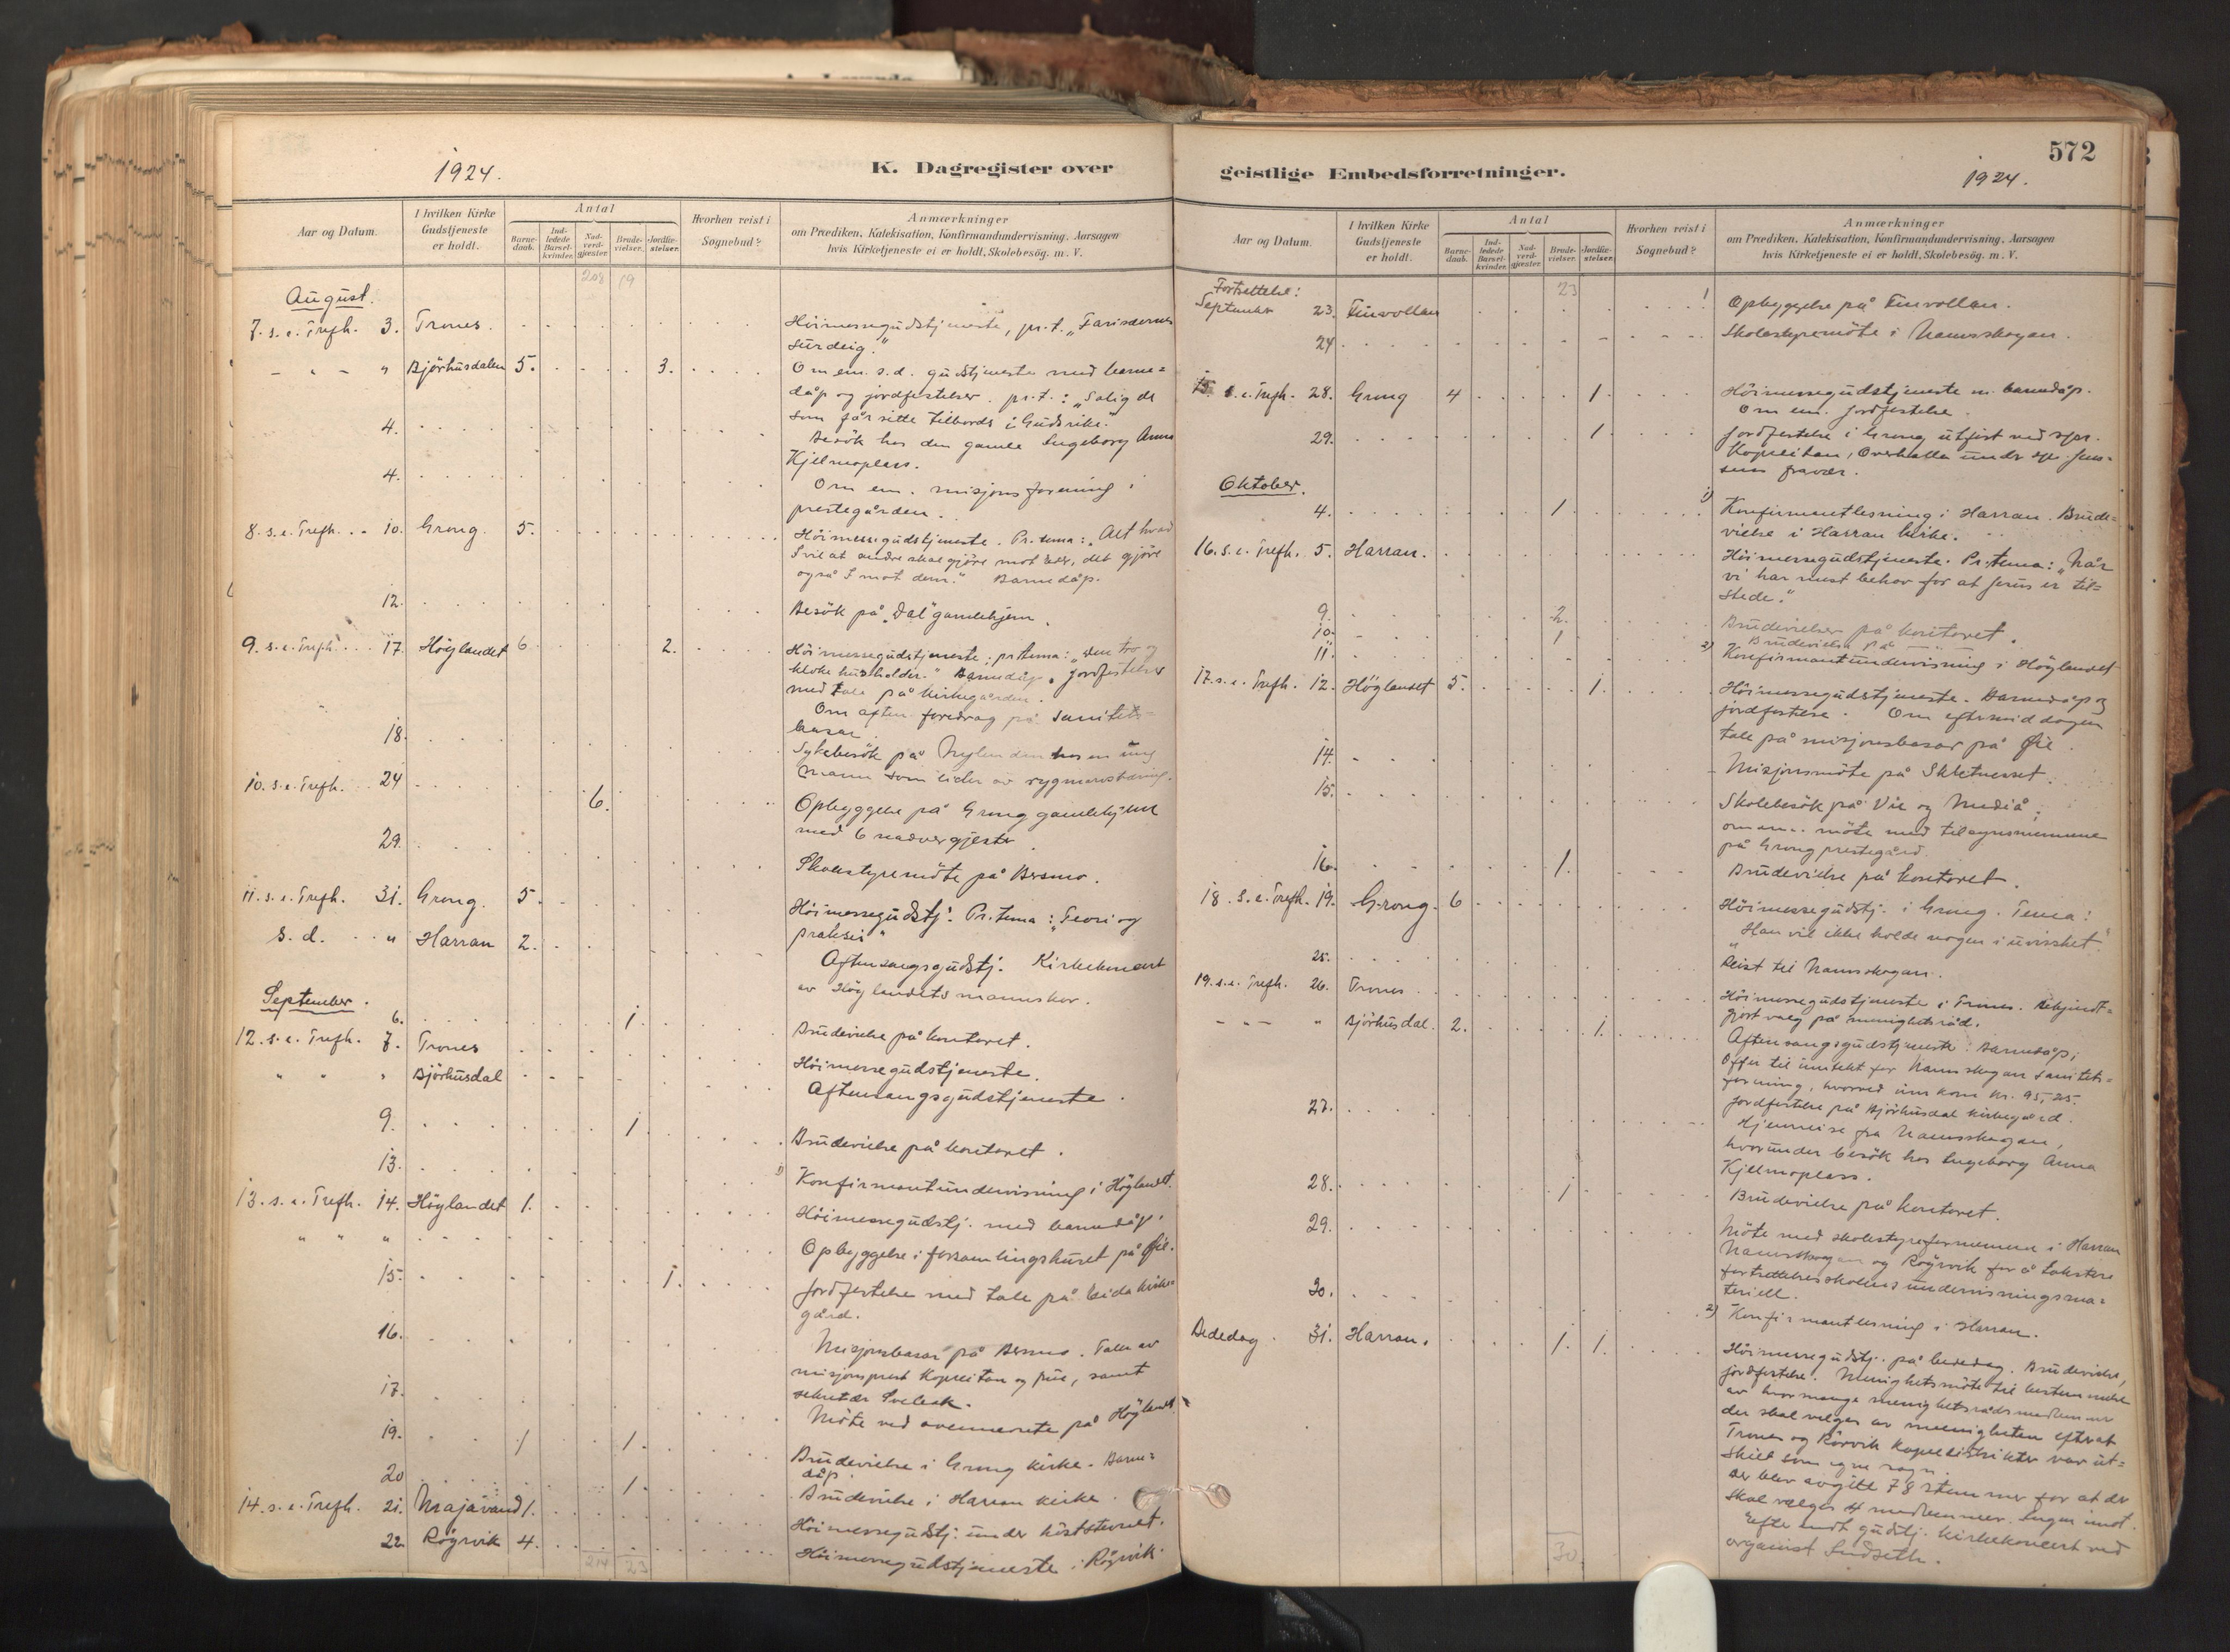 1924.
K. Dagregister over
Aar og Datum.
I hvilken Kirke
Gudstjeneste
er holdt.
Antal
Barne-
daab.
Ind-
ledede
Barsel-
kvinder.
Nad-
verd-
gjæster.
Brude-
vielser.
Jordfæ-
stelser.
Hvorhen reist i
Sognebud?
Anmærkninger
om Prædiken, Katekisation, Konfirmandundervisning, Aarsagen
hvis Kirketjeneste ei er holdt, Skolebesøg. m. V.
208 19
August.
7. s. e. Trefh. 3. Trones. Höimessegudstjeneste, pr. t. „Farisæernes
surdeig."
- " - " Bjørhusdalen 5. 3. Om em. s.d. gudstjeneste med barne=
dåp og jordfestelser. pr. t.: „Salig de
som får sitte tilbords i Guds rike."
4. Besök hos den gamle Ingeborg Anna
Kjelmoplass.
4. Om em. misjonsforening i
prestegården.
8. s. e. Trefh. 10. Grong. 5. Höimessegudstjeneste. Pr. tema: „Alt hvad
I vil at andre skal gjöre mot eder, det gjöre
også I mot dem." Barnedåp.
12. Besök på „Dal" gamlehjem.
9. s. e. Trefh. 17. Höylandet 6 2. Höimessegudstjeneste; pr. tema: „Den tro og
kloke husholder." Barnedåp, jordfestelser
med tale på kirkegården.
Om aften foredrag på sanitets=
basar.
18. Sykebesök på hos en ung
mann som lider av
10. s. e. Trefh. 24 6. Opbyggelse på Grong gamlehjem
med 6 nadvergjester.
29. Skolestyremöte på Bersmo.
11. s. e. Trefh. 31. Grong. 5. Höimessegudstj. Pr. tema: „Teori og
praksis"
s. d. " Harran 2. Aftensangsgudstj. Kirkekonsert
av Höylandets mannskor.
September.
6. 1. Brudevielse på kontoret.
12. s. e. Trefh. 7. Trones Höimessegudstjeneste.
" " " Bjørhusdal Aftensangsgudstjeneste.
9. 1. Brudevielse på kontoret.
13. 1) Konfirmantundervisning i Höylandet.
13. s. e. Trefh. 14. Höylandet 1. Höimessegudstj. med barnedåp.
" " " Opbyggelse i forsamlingshuset på Öie.
15. 1. Jordfestelse med tale på Eida kirke=
gård.
16. Misjonsbasar på Bersmo. Taler av
misjonsprest Kopreitan og frue, samt
sekretær
17. Möte ved ovennevnte på Höylandet.
19. 1 1. Brudevielse i Grong kirke. Barne=
dåp.
20 1. Brudevielse i Harran kirke.
14. s. e. Trefh. 21. Majavand 1. Höimessegudstj. under höststevnet.
22 Röyrvik 4. Höimessegudstjeneste i Röyrvik.
214 23
572
geistlige Embedsforretninger.
1924.
Aar og Datum.
I hvilken Kirke
Gudstjeneste
er holdt.
Antal
Barne-
daab.
Ind-
ledede
Barsel-
kvinder.
Nad-
verd-
gjæster.
Brude-
vielser.
Jordfæ-
stelser.
Hvorhen reist i
Sognebud?
Anmærkninger
om Prædiken, Katekisation, Konfirmandundervisning, Aarsagen
hvis Kirketjeneste ei er holdt, Skolebesøg. m. V.
23
Fortsettelse:
September 23. Finvollan Opbyggelse på Finvollan.
24 Skolestyremöte i Namsskogan.
15. s. e. Trefh. 28. Grong 4 1. Höimessegudstjeneste m. barnedåp.
Om em. jordfestelse.
29. 1. Jordfestelse i Grong utfört ved
Kopreitan, Overhalla under
fravær.
Oktober.
4. 1. 1) Konfirmantlesning i Harran. Brude=
vielse i Harran kirke.
16. s. e. Trefh. 5. Harran. Höimessegudstjeneste. Pr. tema: „Når
vi har mest behov for at Jesus er til=
stede."
9. 2. Brudevielser på kontoret.
10. 1 Brudevielse på - " -
11. 2) Konfirmantundervisning i Höylandet
17. s. e. Trefh. 12. Höylandet 5. 1. Höimessegudstjeneste. Barnedåp og
jordfestelse. Om eftermiddagen
tale på misjonsbasar på Öie.
14. Misjonsmöte på Skletnesset.
15. Skolebesök på Vie og Mediå;
om em. möte med tilsynsmennene
på Grong prestegård.
16. 1. Brudevielse på kontoret.
18. s. e. Trefh. 19. Grong. 6 Höimessegudstj. i Grong. Tema:
„Han vil ikke holde nogen i uvisshet."
25. Reist til Namsskogan.
19. s. e. Trefh. 26. Trones Höimessegudstjeneste i Trones. Bekjendt=
gjort valg på menighetsråd.
- " - " Bjørhusdal. 2. 1. Aftensangsgudstjeneste: Barnedåp;
Offer til inntekt for Namsskogan sanitets=
forening, hvorved inn kom kr. 95,25.
Jordfestelse på Bjørhusdal kirkegård.
27. Hjemreise fra Namsskogan,
hvorunder besök hos Ingeborg Anna
Kjelmoplass.
28. 1 Brudevielse på kontoret.
29. Möte med skolestyreformennene i Harran
Namsskogan og Röyrvik for å takstere
fortsettelsesskolens undervisningsma=
teriell.
30. 2) Konfirmantlesning i Harran.
Bededag. 31. Harran. 1. 1. Höimessegudstj. på bededag. Brudevielse,
jordfestelse. Menighetsmöte til bestemmelse
av hvor mange menighetsrådsmedlemmer
der skal velges av menigheten efterat
Trones og Rörvik kapelldistrikter var ut=
skilt som egne sogn.
Der blev avgitt 78 stemmer for at der
skal velges 4 medlemmer. Ingen imot.
Efter endt gudstj. kirkekonsert ved
organist Lindseth.
30